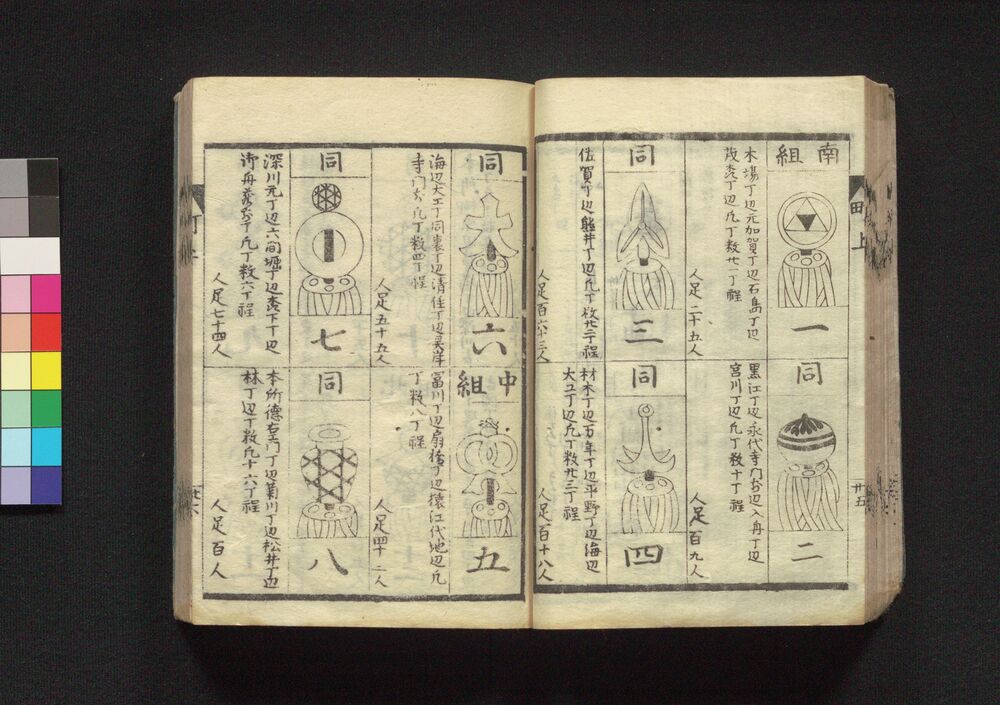 南組
一
木場丁辺元加賀丁辺石島丁辺
茂森丁辺凡丁数廿一丁程
人足二十五人
同
二
黒江丁辺永代寺門前辺入舟丁辺
宮川丁辺凡丁数十丁程
人足百九人
同
三
佐賀丁辺熊井丁辺凡丁数廿二丁程
同
四
材木丁辺万年丁辺平野丁辺海辺
大工丁辺凡丁数廿三丁程
人足百十八人
同
六
海辺大工丁同裏丁辺清住丁辺
寺門前凡丁数四丁程
人足五十五人
中組
五
冨川丁辺扇橋丁辺猿江代地辺凡
丁数八丁程
人足四十二人
同
七
深川元丁辺六間堀丁辺森下丁辺
御舟蔵前丁凡丁数六丁程
人足七十四人
同
八
本所徳右エ門丁辺菊川丁辺松井丁辺
林丁辺丁数凡十六丁程
人足百人
廿五
廿六